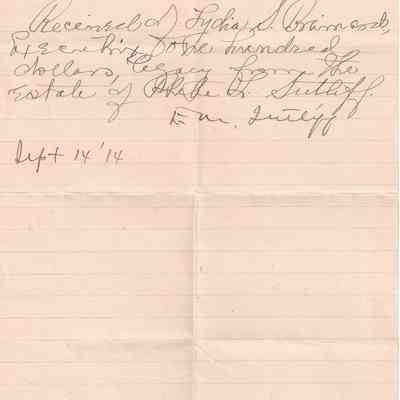 Received of Lydia S. Brainerd,
Executrix, one hundred
dollars, legacy from the
Estate of Phebe L. Sutliff.
E M, Sutliff
Sept 14 '14